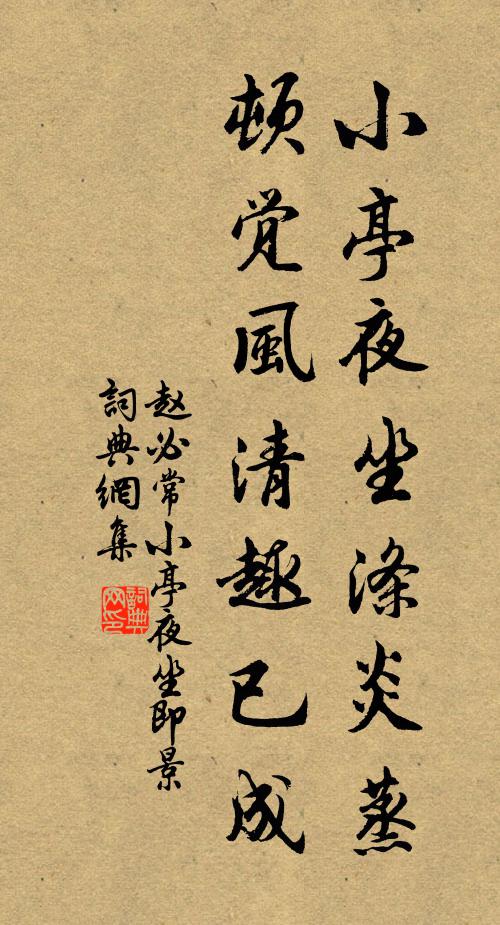 小亭夜坐涤炎蒸
頓觉風清趣已成
赵必常小亭夜坐即景
詞典網集
詞典网印